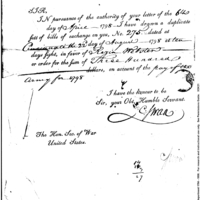 SIR.
IN pursuance of the authority of your letter of the 6th
day of April 1798 I have drawn a duplicate
sett of bills of exchange on you, No. 275 dated at
Cincinnati the 22d day of August 1798 at ten
days sight, in favor of
or order for the sum of Three Hundred
dollars, on account of the pay of the
Army for 1798
I have the honour to be
Sir, your Obt. Humble Servant.
C Swan
The Hon. Sec. of War
United States.